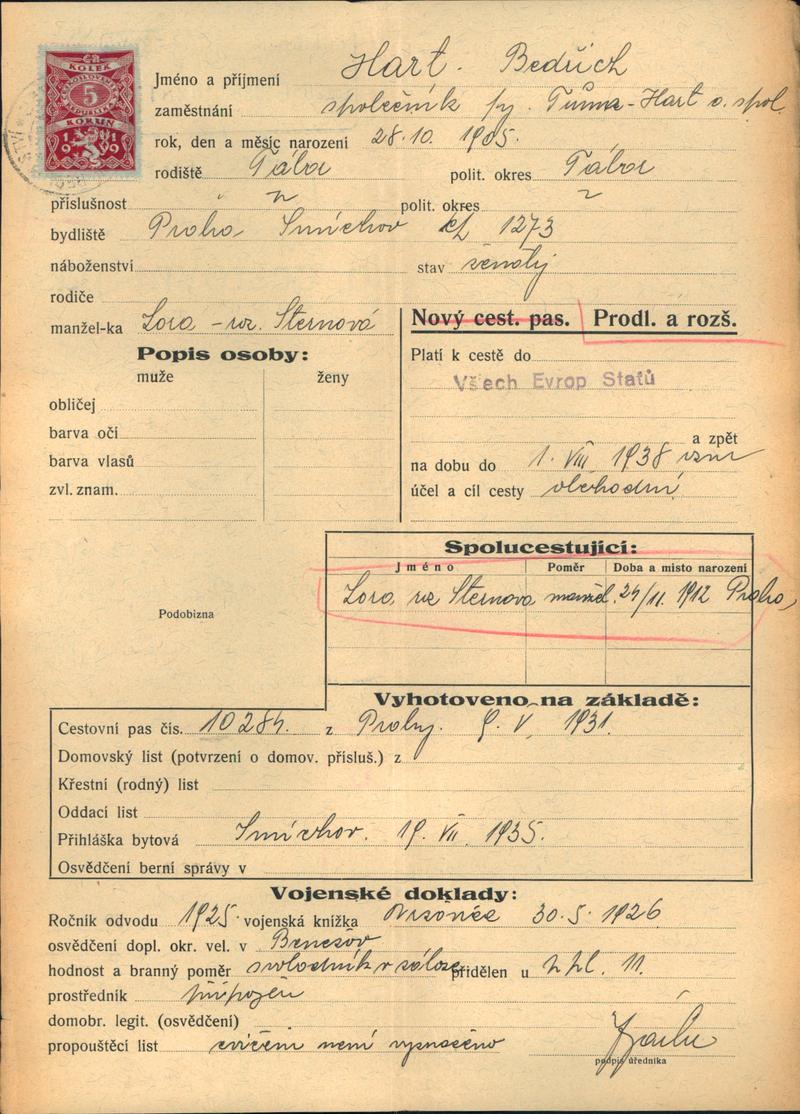 KOLEK
5
KORUN
1919
Jméno a příjmení Hart. Bedřich
zaměstnání společník fy. Tůma-Hart a spol.
rok, den a měsíc narození 28.10. 1905.
rodiště Tábor polit. okres Tábor
příslušnost " polit. okres
bydliště Praha Smíchov čp. 1273
náboženství stav ženatý
rodiče
manžel-ka Lora - roz. Sternová
Nový cest. pas. Prodl. a rozš.
Popis osoby:
muže ženy
obličej
barva očí
barva vlasů
zvl. znam.
Platí k cestě do
Všech Evrop Statů
a zpět
na dobu do 1. VIII. 1938
účel a cíl cesty obchodní
Podobizna
Spolucestující:
Jméno Poměr Doba a místo narození
Lora roz Sternova manžel. 24/11. 1912 Praha
Vyhotoveno na základě:
Cestovní pas čís. 10284. z Prahy. 9. V. 1931.
Domovský list (potvrzení o domov. přísluš.) z
Křestní (rodný) list
Oddací list
Přihláška bytová Smíchov. 19. VII. 1935.
Osvědčení berní správy v
Vojenské doklady:
Ročník odvodu 1925. vojenská knížka 30.5. 1926.
osvědčení dopl. okr. vel. v Benešov
hodnost a branný poměr svobodník v záloze přidělen u p. pl. 11.
prostředník připojen
domobr. legit. (osvědčení)
propouštěcí list cvičení není vyznačeno
podpis úředníka